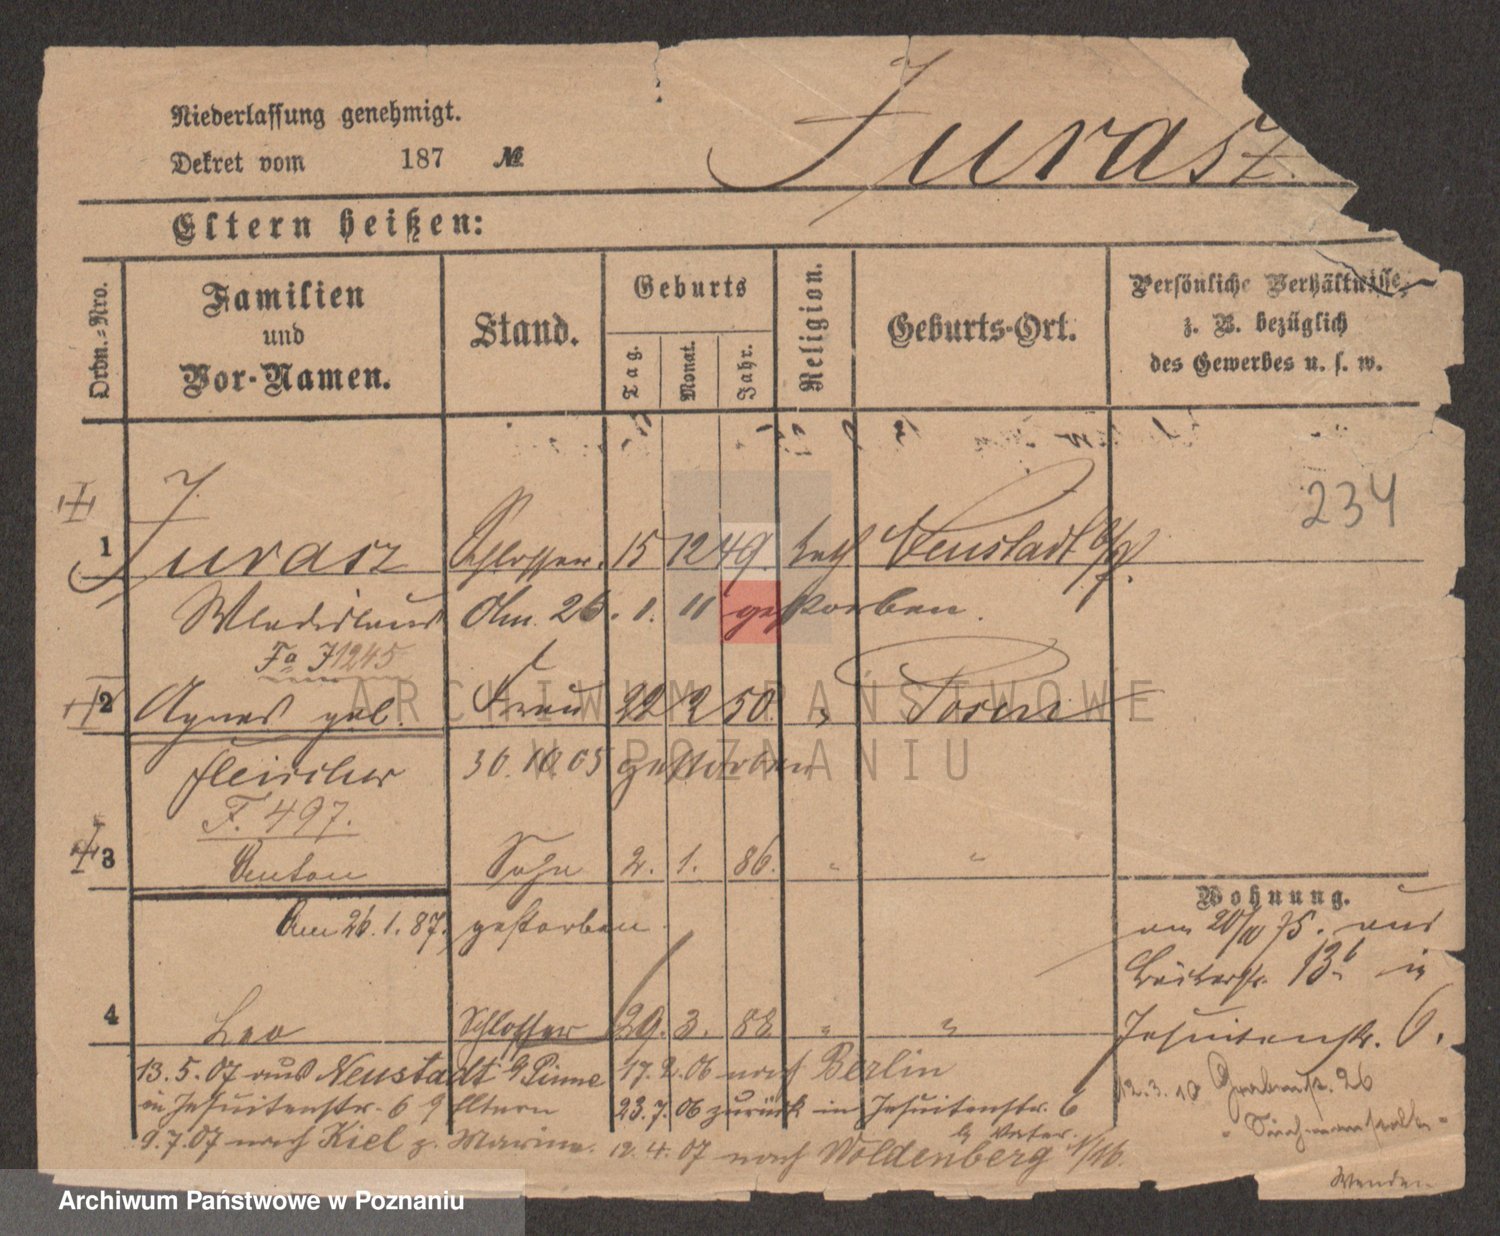 Niederlassung genehmigt.
Dekret vom 187 №
Jurasz
Eltern heißen:
Ordn.-Nro.
Familien
und
Vor-Namen.
Stand.
Geburts
Tag.
Monat.
Jahr.
Religion.
Geburts-Ort.
Persönliche Verhältnisse,
z. B. bezüglich
des Gewerbes u. s. w.
234
1 Jurasz Schlosser. 15 12 49. kath Neustadt b/P.
Wladislaus Am. 26. 1. 11 gestorben.
Fa J1245
2 Agnes geb. Frau 22 2 50. " Posen
Fleischer 30.10.05 gestorben
F. 497.
3 Anton Sohn 2. 1. 86. " "
Am 26.1.87. gestorben.
4 Leo Schlosser 29. 3. 88 " "
13.5.07 aus Neustadt b Pinne 17.2.06 nach Berlin
in Jesuitenstr. 6 b Eltern 23.7.06 zurück in Jesuitenstr. 6
b Vater.
9.7.07 nach Kiel z. Marine. 12.4.07 nach Woldenberg N/M.
Wohnung.
am 20/10 75. aus
13b in
Jesuitenstr. 6.
12.3.10 Grabenstr. 26
Wenden
ARCHIWUM PAŃSTWOWE
W POZNANIU
Archiwum Państwowe w Poznaniu